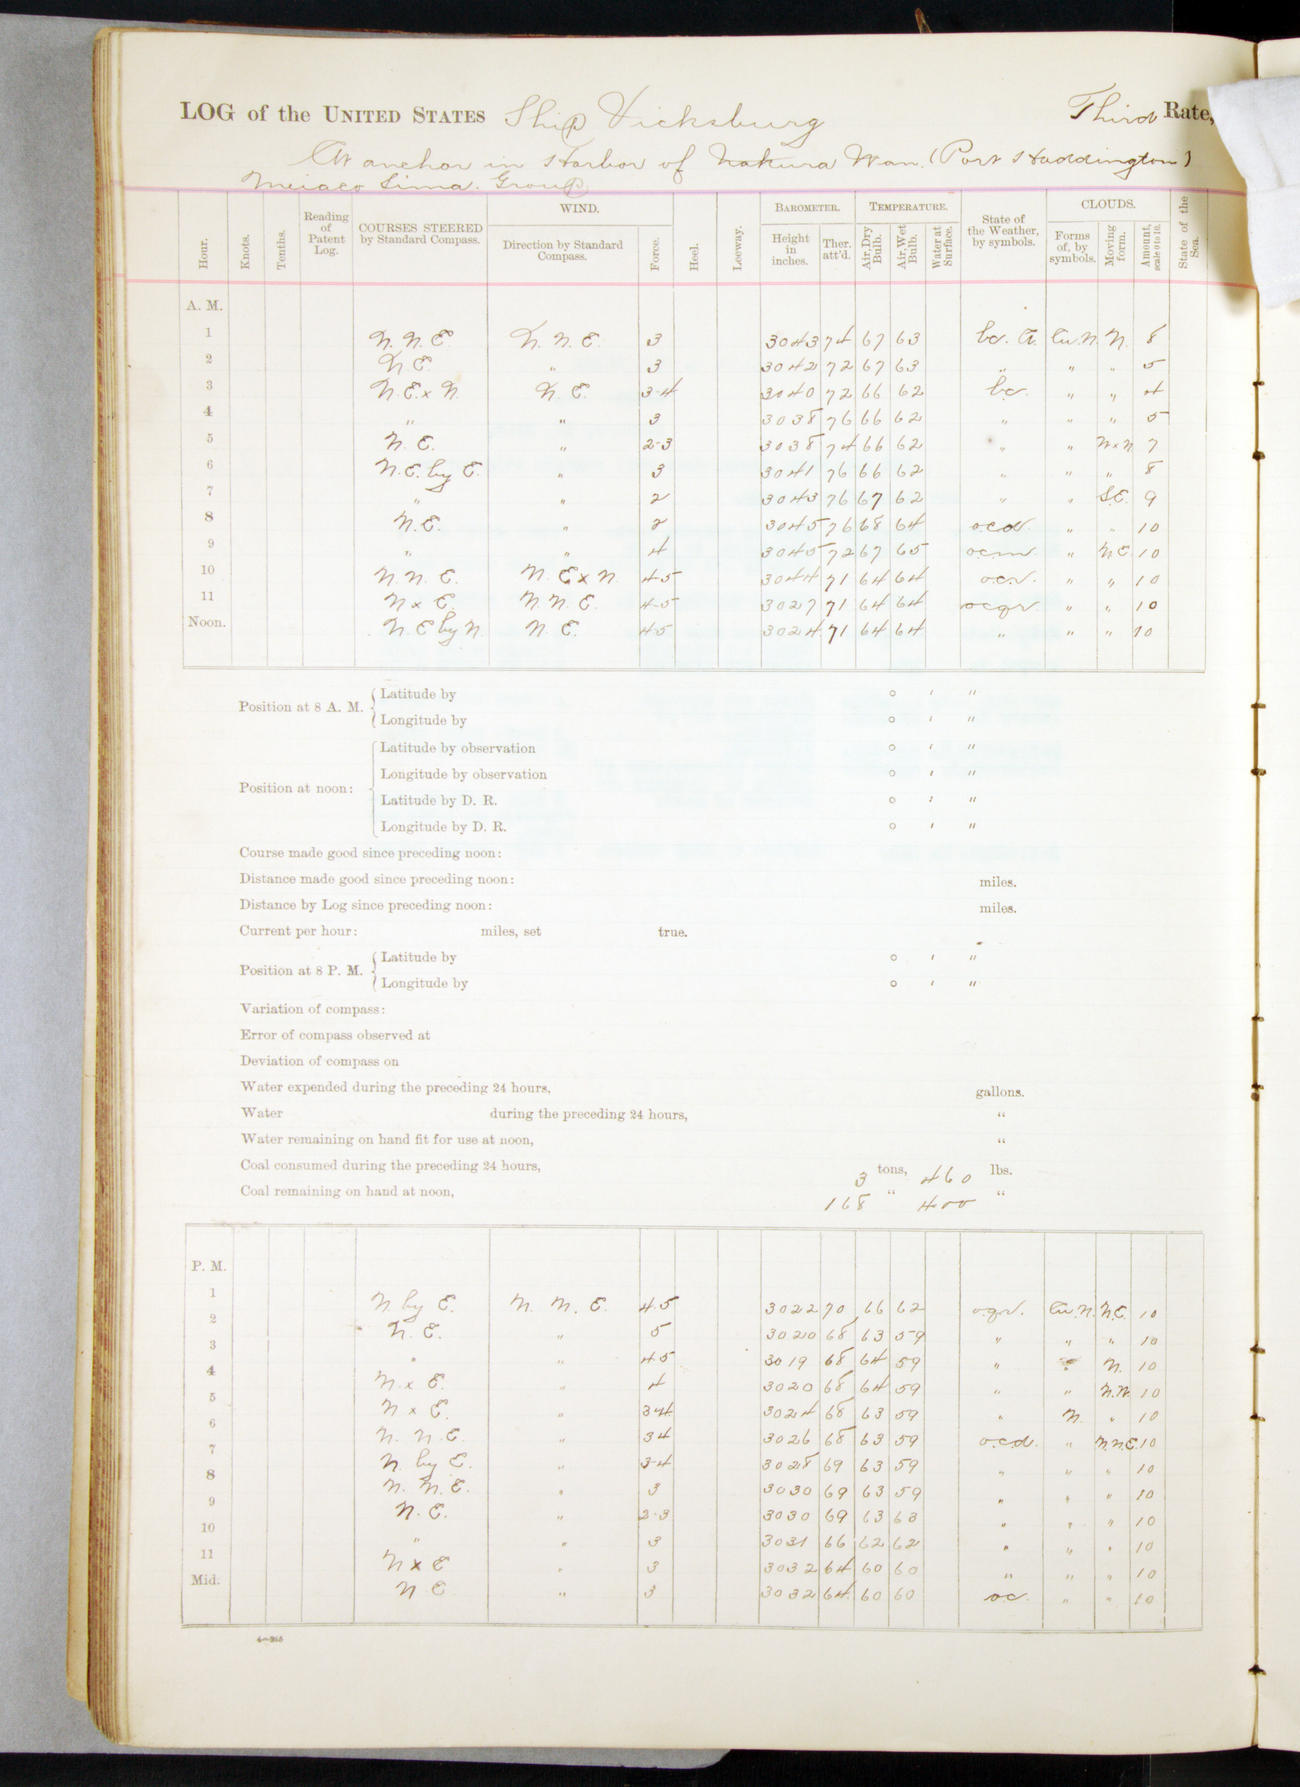 LOG of the UNITED STATES Ship Vicksburg Third Rate,
At anchor in Harbor of Nakura Wan. (Port Haddington)
Meiaco Sima. Group
Hour. Knots. Tenths. Reading of Patent Log. COURSES STEERED by Standard Compass. WIND. Direction by Standard Compass. Force. Heel. Leeway. BAROMETER. Height in inches. Ther. att'd. TEMPERATURE. Air, Dry Bulb. Air, Wet Bulb. Water at Surface. State of the Weather, by symbols. CLOUDS. Forms of, by symbols. Moving form. Amount, scale 0 to 10. State of the Sea.
A. M.
1 N. N. E. N. N. E. 3 3043 74 67 63 bc. Cu. N. N. 8
2 N E. " 3 3042 72 67 63 " " " 5
3 N. E. x N. N. E. 3-4 3040 72 66 62 bc. " " 4
4 " " 3 3038 76 66 62 " " " 5
5 N. E. " 2-3 3038 74 66 62 " " N x N. 7
6 N. E. by E. " 3 3041 76 66 62 " " " 8
7 " " 2 3043 76 67 62 " " S.E. 9
8 N. E. " 2 3045 76 68 64 ocd. " " 10
9 " " 4 3045 72 67 65 ocm. " N E 10
10 N. N. E. N. E x N. 4-5 3044 71 64 64 ocr. " " 10
11 N x E. N. N. E. 4-5 3027 71 64 64 ocqr. " " 10
Noon. N. E by N. N. E. 4-5 3024 71 64 64 " " " 10
Position at 8 A. M. Latitude by ° ′ ″
Longitude by ° ′ ″
Position at noon: Latitude by observation ° ′ ″
Longitude by observation ° ′ ″
Latitude by D. R. ° ′ ″
Longitude by D. R. ° ′ ″
Course made good since preceding noon:
Distance made good since preceding noon: miles.
Distance by Log since preceding noon: miles.
Current per hour: miles, set true.
Position at 8 P. M. Latitude by ° ′ ″
Longitude by ° ′ ″
Variation of compass:
Error of compass observed at
Deviation of compass on
Water expended during the preceding 24 hours, gallons.
Water during the preceding 24 hours, "
Water remaining on hand fit for use at noon, "
Coal consumed during the preceding 24 hours, 3 tons, 460 lbs.
Coal remaining on hand at noon, 168 " 400 "
P. M.
1 N. by E. N. N. E. 4-5 3022 70 66 62 oqr. Cu. N. N.E. 10
2 N. E. " 5 3020 68 63 59 " " " 10
3 " " 4-5 3019 68 64 59 " " N. 10
4 N. x E. " 4 3020 68 64 59 " " N.N. 10
5 N x E. " 3-4 3024 68 63 59 " N. " 10
6 N. N. E. " 3-4 3026 68 63 59 ocd. " N.N.E. 10
7 N. by E. " 3-4 3028 69 63 59 " " " 10
8 N. N. E. " 3 3030 69 63 59 " " " 10
9 N. E. " 2-3 3030 69 63 63 " " " 10
10 " " 3 3031 66 62 62 " " " 10
11 N x E " 3 3032 64 60 60 " " " 10
Mid. N E " 3 3032 64 60 60 oc. " " 10